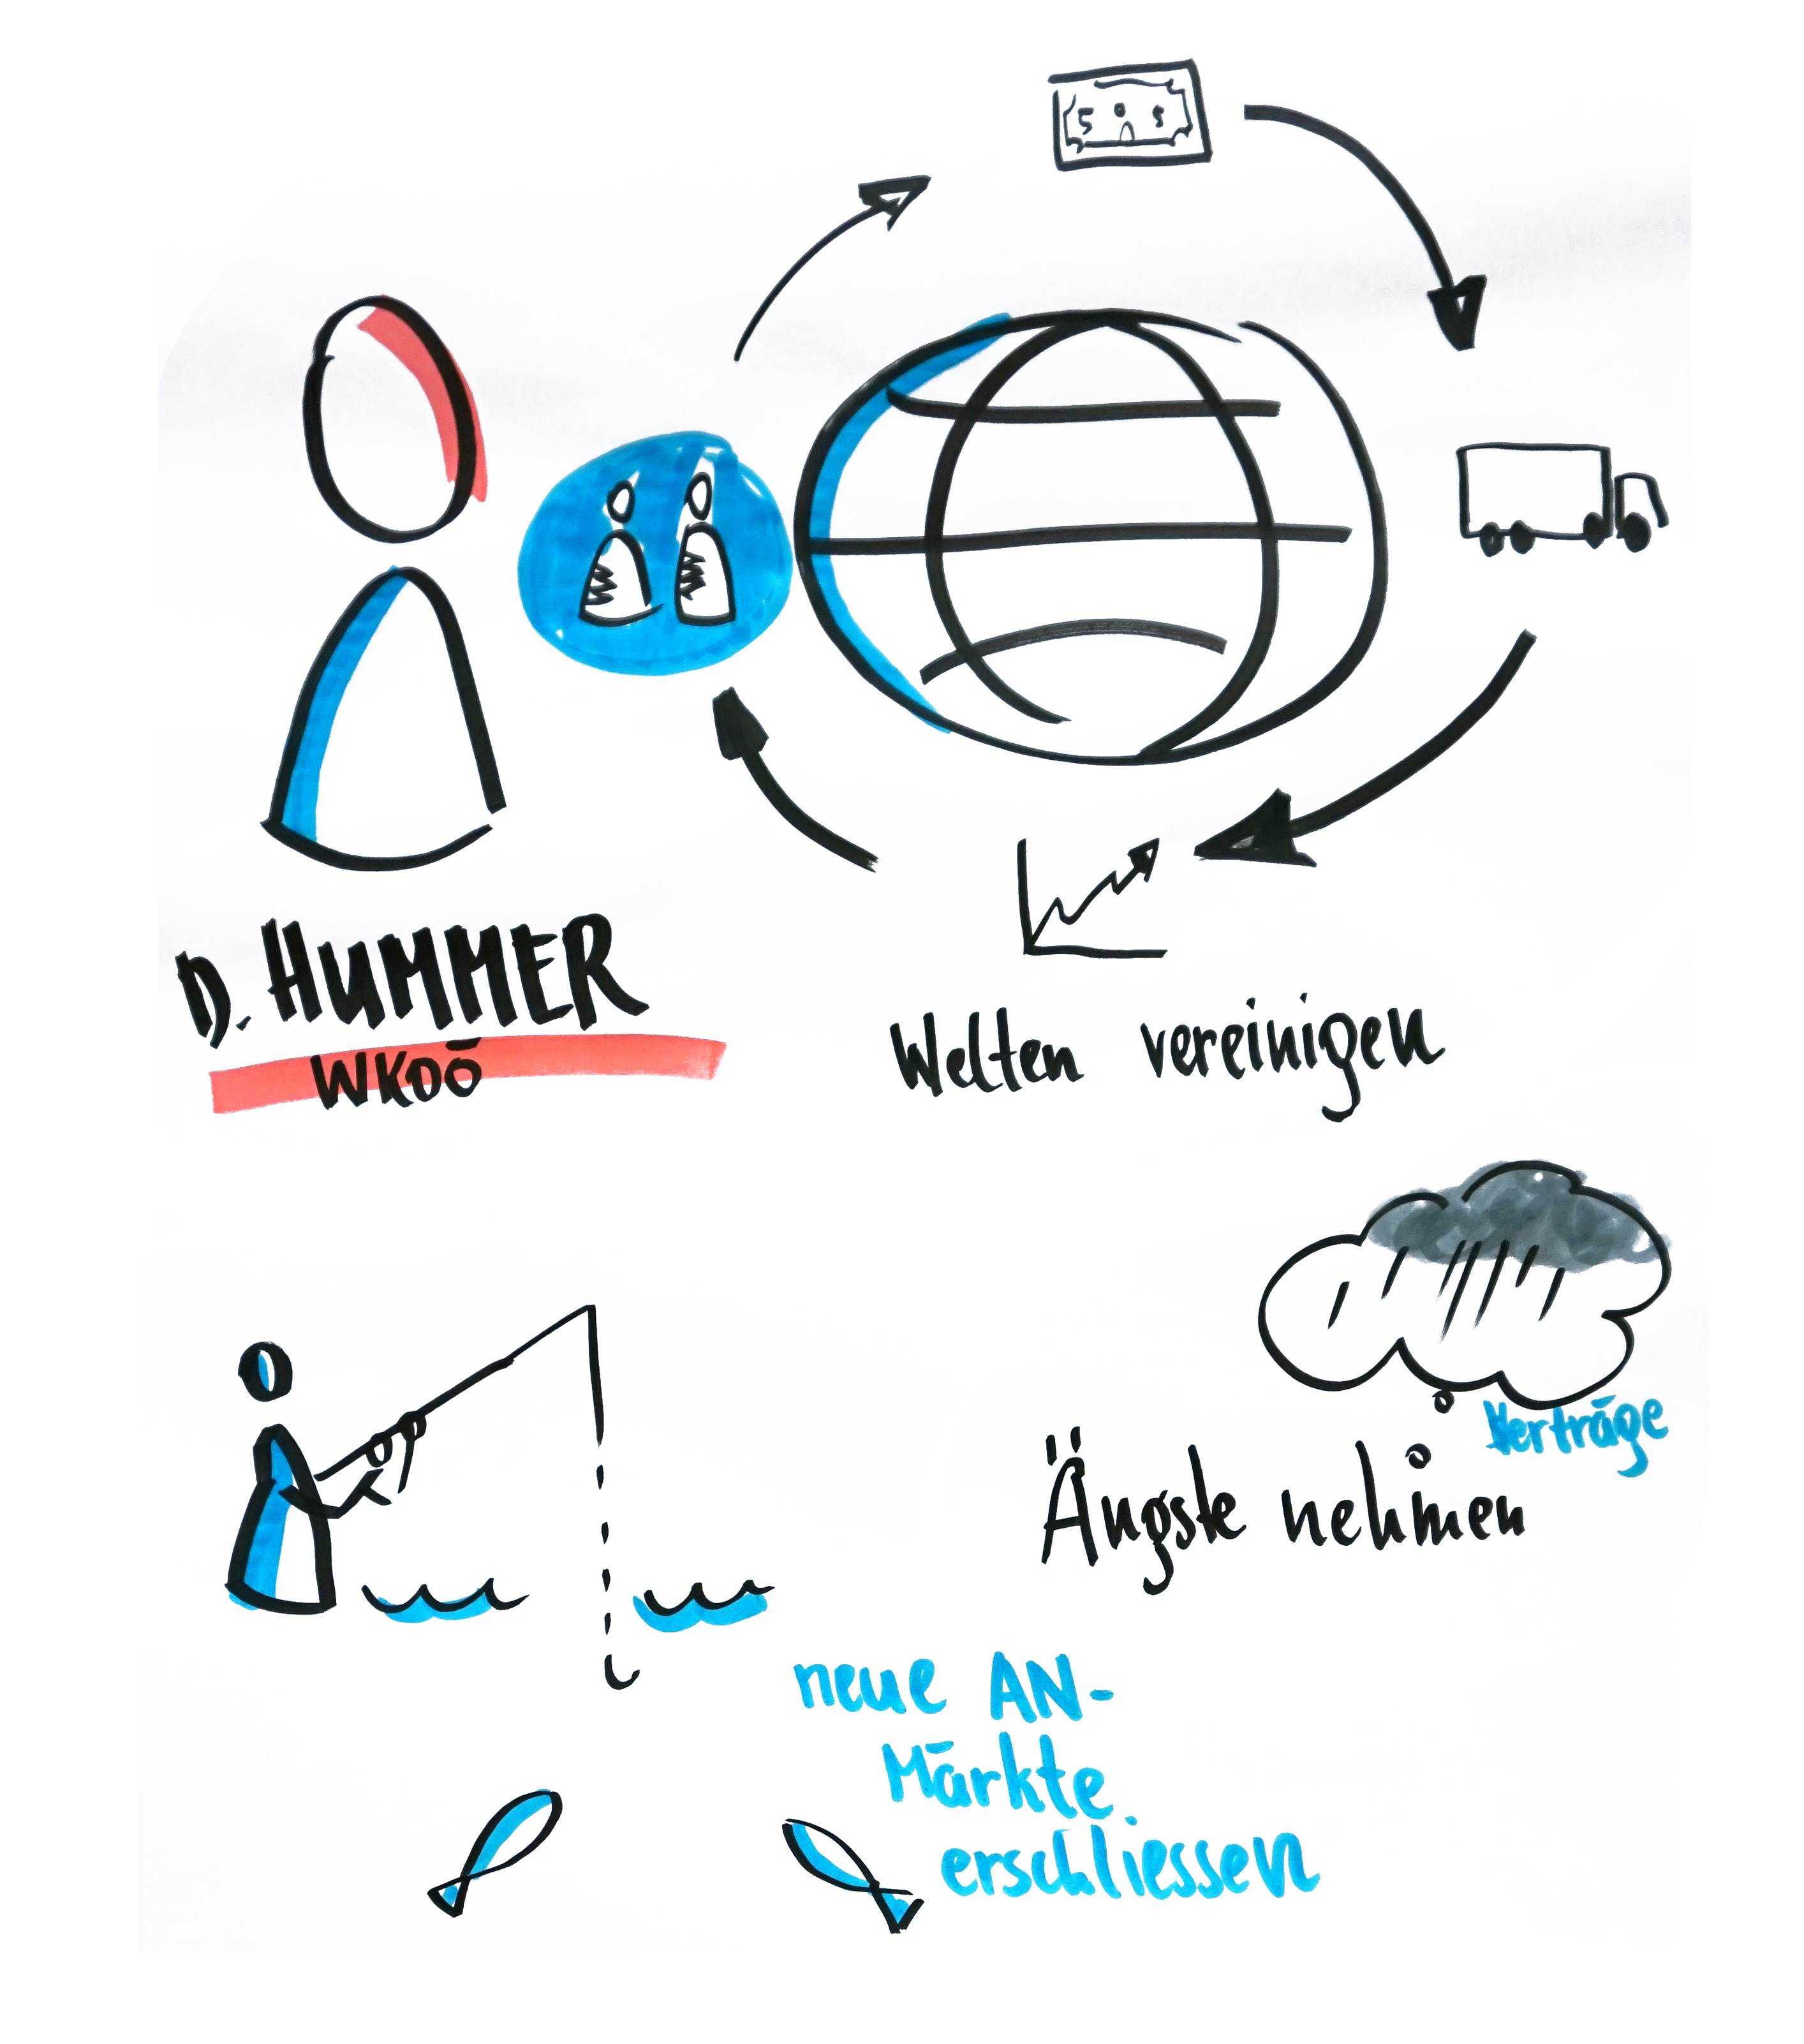 5 5
D. HUMMER
WKOÖ
Welten vereinigen
Verträge
Ängste nehmen
neue AN-
Märkte
erschliessen